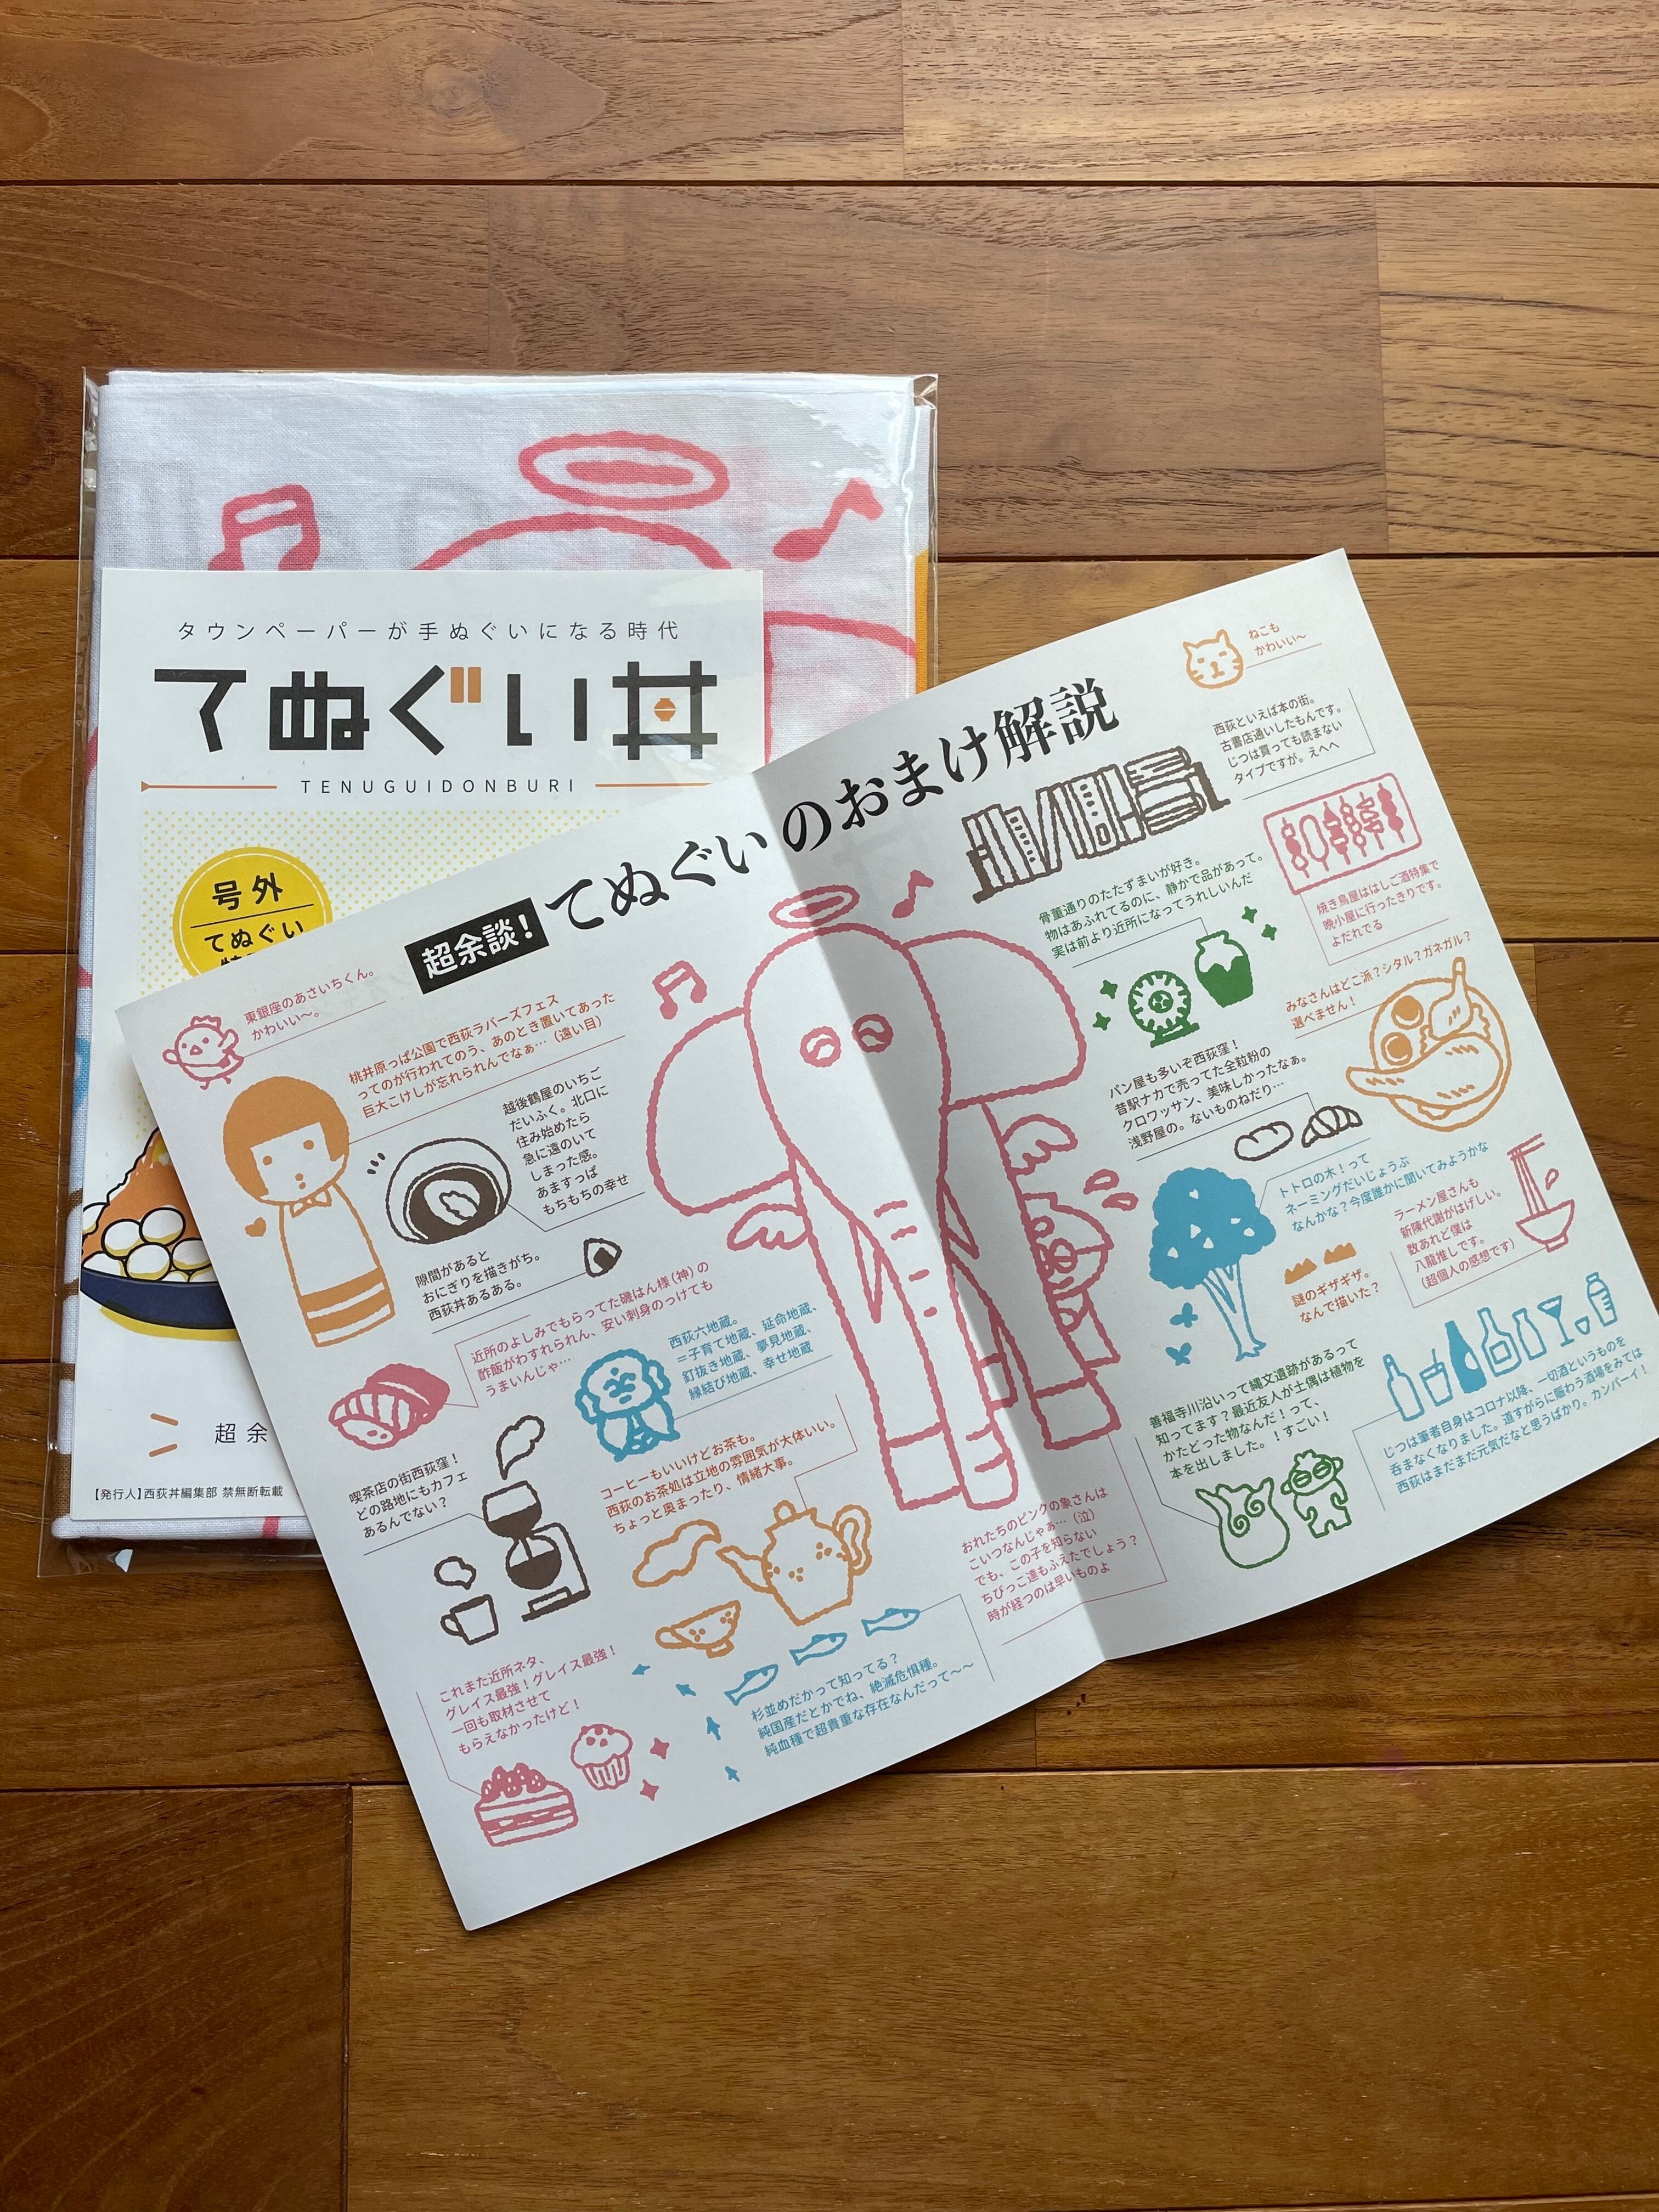 タウンペーパーが手ぬぐいになる時代
てぬぐい丼
TENUGUIDONBURI
号外
てぬぐい
超余
【発行人】西荻丼編集部 禁無断転載
超余談！
てぬぐいのおまけ解説
東銀座のあさいちくん。
かわいい〜。
桃井原っぱ公園で西荻ラバーズフェス
ってのが行われてのう、あのとき置いてあった
巨大こけしが忘れられんでなぁ…（遠い目）
越後鶴屋のいちご
だいふく。北口に
住み始めたら
急に遠のいて
しまった感。
あますっぱ
もちもちの幸せ
隙間があると
おにぎりを描きがち。
西荻丼あるある。
近所のよしみでもらってた磯はん様（神）の
酢飯がわすれられん、安い刺身のっけても
うまいんじゃ…
西荻六地蔵。
＝子育て地蔵、延命地蔵、
釘抜き地蔵、夢見地蔵、
縁結び地蔵、幸せ地蔵
喫茶店の街西荻窪！
どの路地にもカフェ
あるんでない？
コーヒーもいいけどお茶も。
西荻のお茶処は立地の雰囲気が大体いい。
ちょっと奥まったり、情緒大事。
これまた近所ネタ、
グレイス最強！グレイス最強！
一回も取材させて
もらえなかったけど！
杉並めだかって知ってる？
純国産だとかでね、絶滅危惧種。
純血種で超貴重な存在なんだって〜〜
おれたちのピンクの象さんは
こいつなんじゃぁ…（泣）
でも、この子を知らない
ちびっこ達もふえたでしょう？
時が経つのは早いものよ
ねこも
かわいい〜
西荻といえば本の街。
古書店通いしたもんです。
じつは買っても読まない
タイプですが。えへへ
焼き鳥屋ははしご酒特集で
晩小屋に行ったきりです。
よだれでる
骨董通りのたたずまいが好き。
物はあふれてるのに、静かで品があって。
実は前より近所になってうれしいんだ
みなさんはどこ派？シタル？ガネガル？
選べません！
パン屋も多いぞ西荻窪！
昔駅ナカで売ってた全粒粉の
クロワッサン、美味しかったなぁ。
浅野屋の。ないものねだり…
トトロの木！って
ネーミングだいじょうぶ
なんかな？今度誰かに聞いてみようかな
ラーメン屋さんも
新陳代謝がはげしい。
数あれど僕は
八龍推しです。
（超個人の感想です）
謎のギザギザ。
なんで描いた？
善福寺川沿いって縄文遺跡があるって
知ってます？最近友人が土偶は植物を
かたどった物なんだ！って、
本を出しました。！すごい！
じつは筆者自身はコロナ以降、一切酒というものを
呑まなくなりました。道すがらに賑わう酒場をみては
西荻はまだまだ元気だなと思うばかり。カンパーイ！